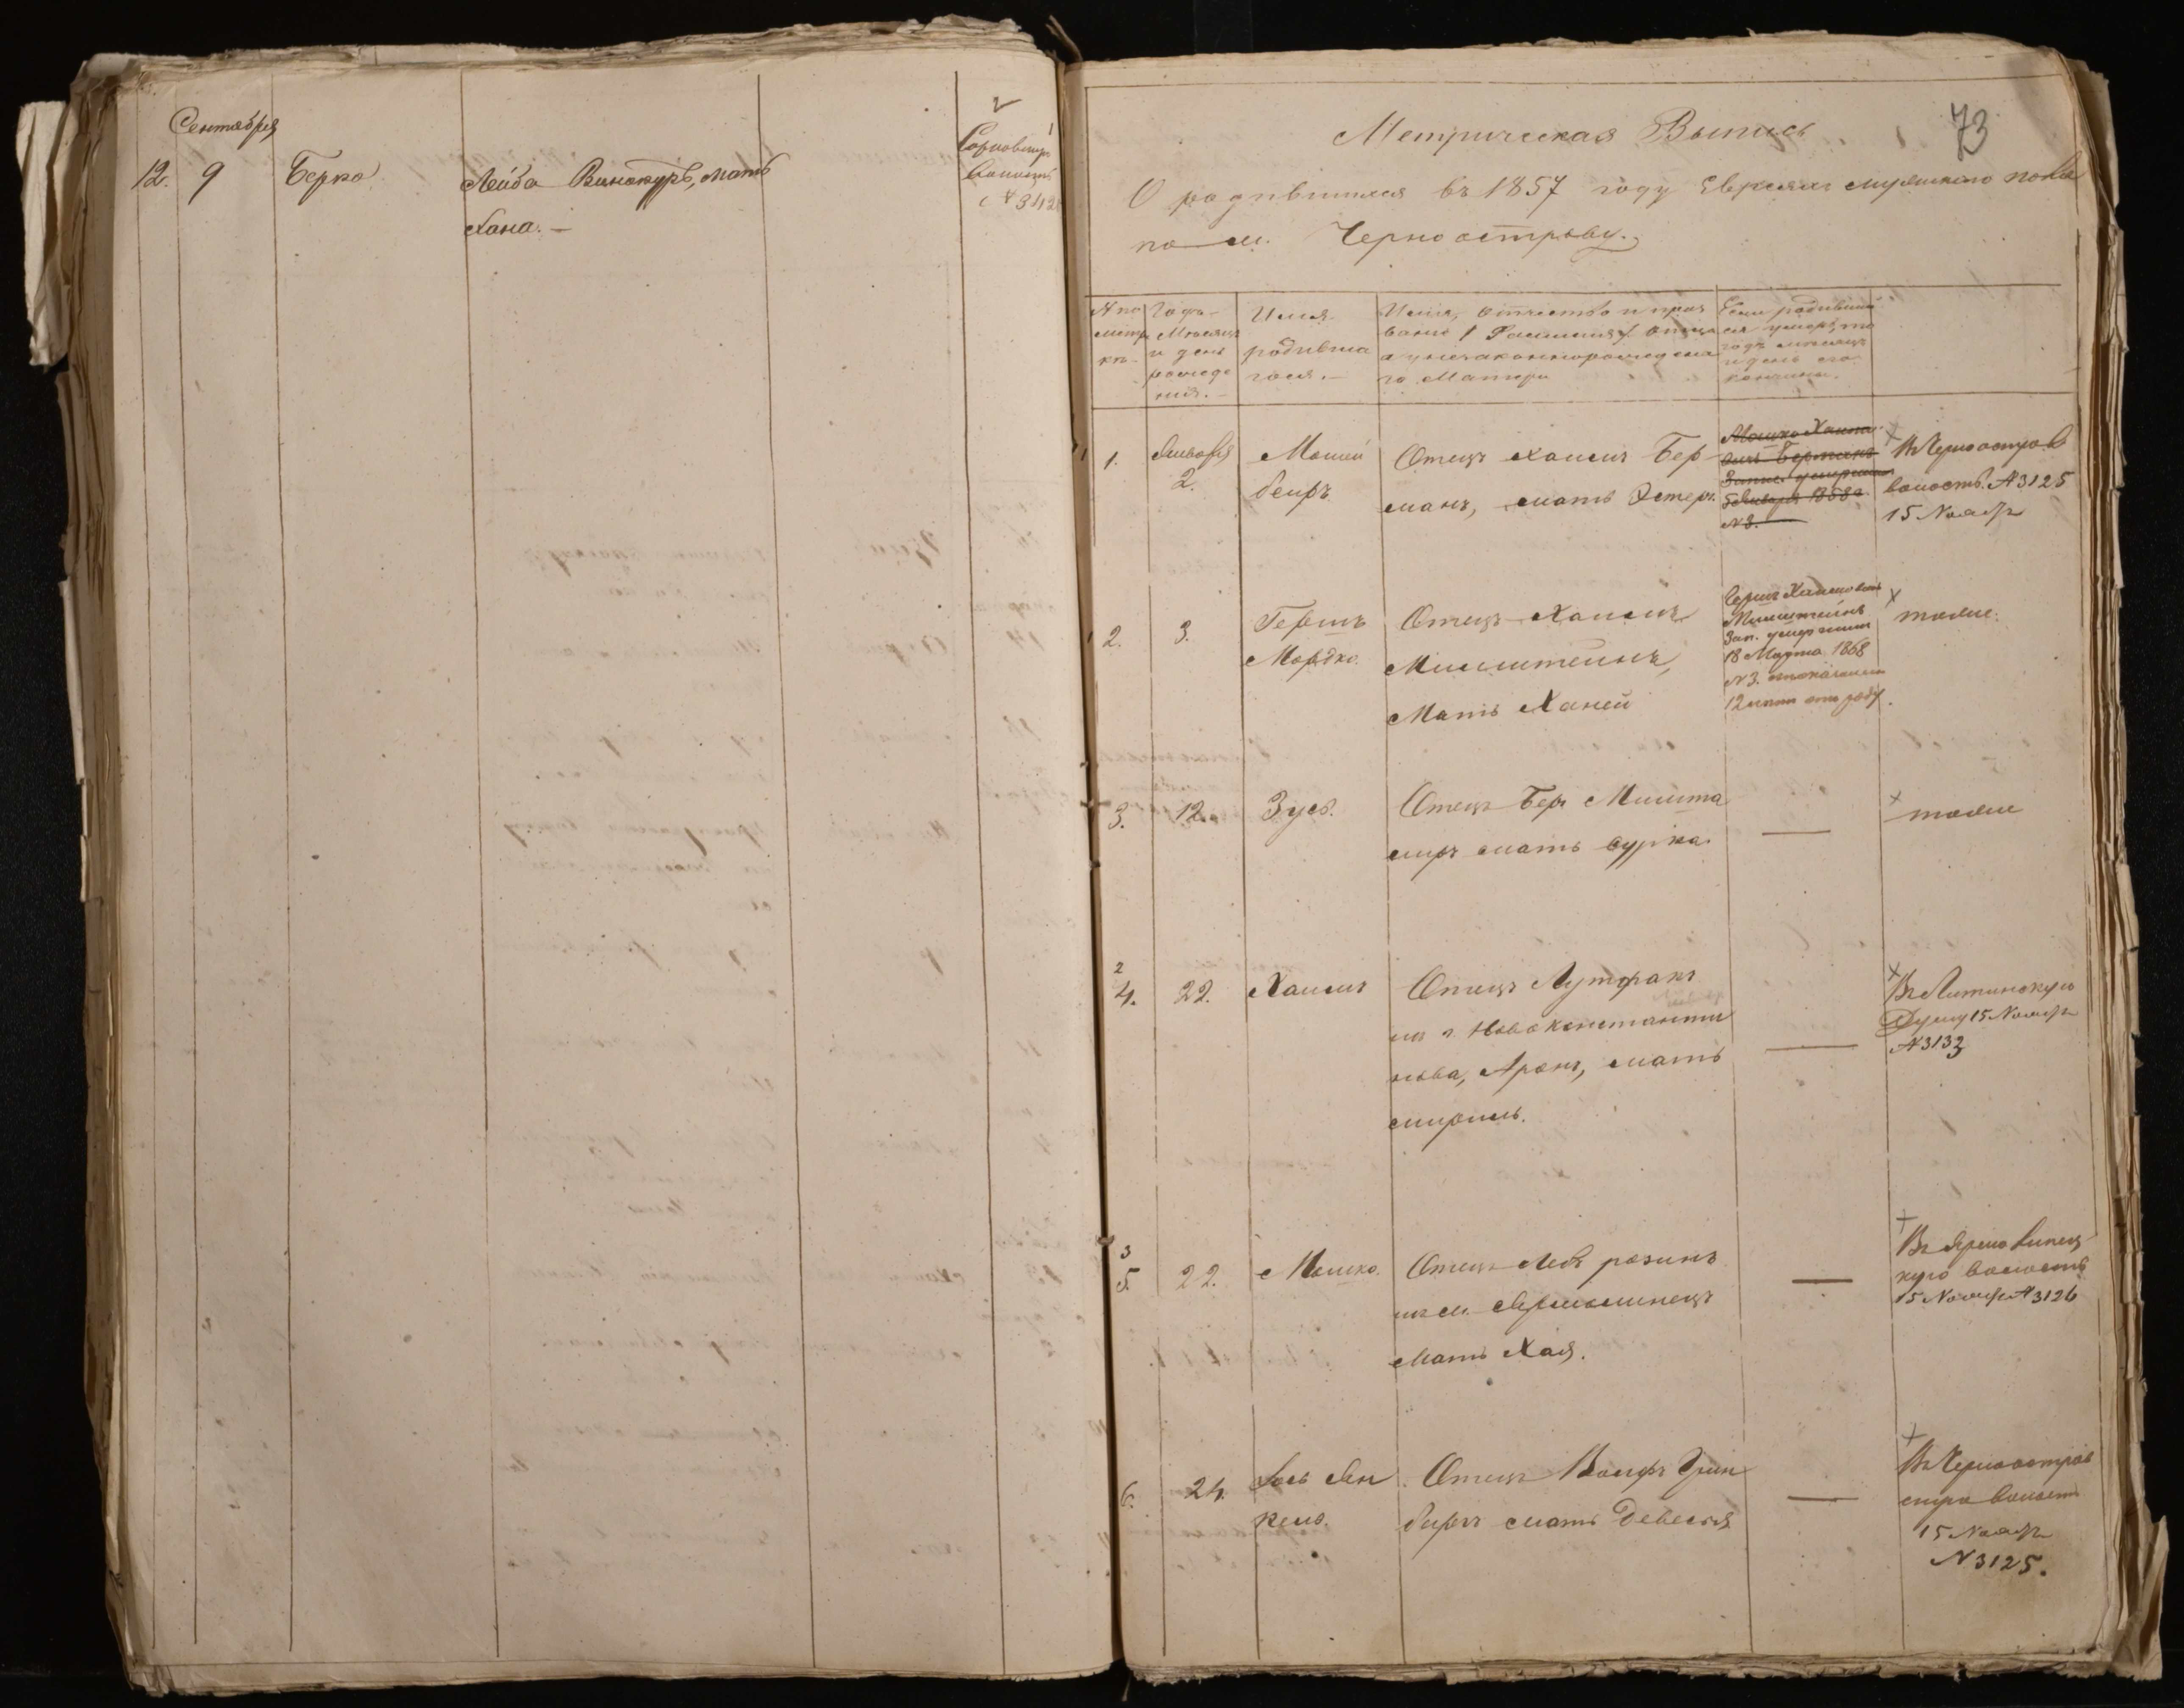 Сентября
12. 9 Берко Лейба Винокуръ, мать
Хана. —
волость
№ 342
73
Метрическая Выпись
О родившихся въ 1857 году Евреяхъ мужескаго пола
по м. Черноострову.
№ по
метри
кѣ
Года
Мѣсяцъ
и день
рожде
нія. —
Имя
родивша
гося. —
Имя, отчество и проз
ваніе / Фамилія / отца
а у незаконнорожденна
го Матери
Если родившій
ся умеръ, то
годъ мѣсяцъ
и день его
кончины.
1. Января
2.
Мошко
беиръ
Отецъ Хаимъ Бер
манъ, мать Эстеръ.
Мошко Хаимо
вичъ Берманъ
Запис. умершим
Января 1858 г.
№ 3.
Въ Черноостров
волость. № 3125
15 Ноябр
2. 3. Гершъ
Мордко.
Отецъ Хаимъ
Милштейнъ,
Мать Ханей
Гершъ Хаимовичъ
Милштейнъ
Зап. умершим
18 Марта 1868
№ 3.
12 лѣтъ отъ роду.
тоже.
3. 12. Зусь. Отецъ Беръ Милите
меръ мать Сурка. —
тоже
2
4. 22. Хаимъ Отецъ Лутфакъ
из г. Новоконстанти
нова, Аронъ, мать
мирель. —
Въ Литинскую
Думу 15 Ноябр
№ 3133
3
5. 22. Мошко. Отецъ Лейб розинъ
из м. Ярмолинецъ
Мать Хая. —
Въ Ярмолинец
кую волость
15 Ноябр № 3126
6. 24. Іось Ян
кель.
Отецъ Волфъ Грин
бергъ мать Девося —
Въ Черноостров
скую волость
15 Ноябр
№ 3125.